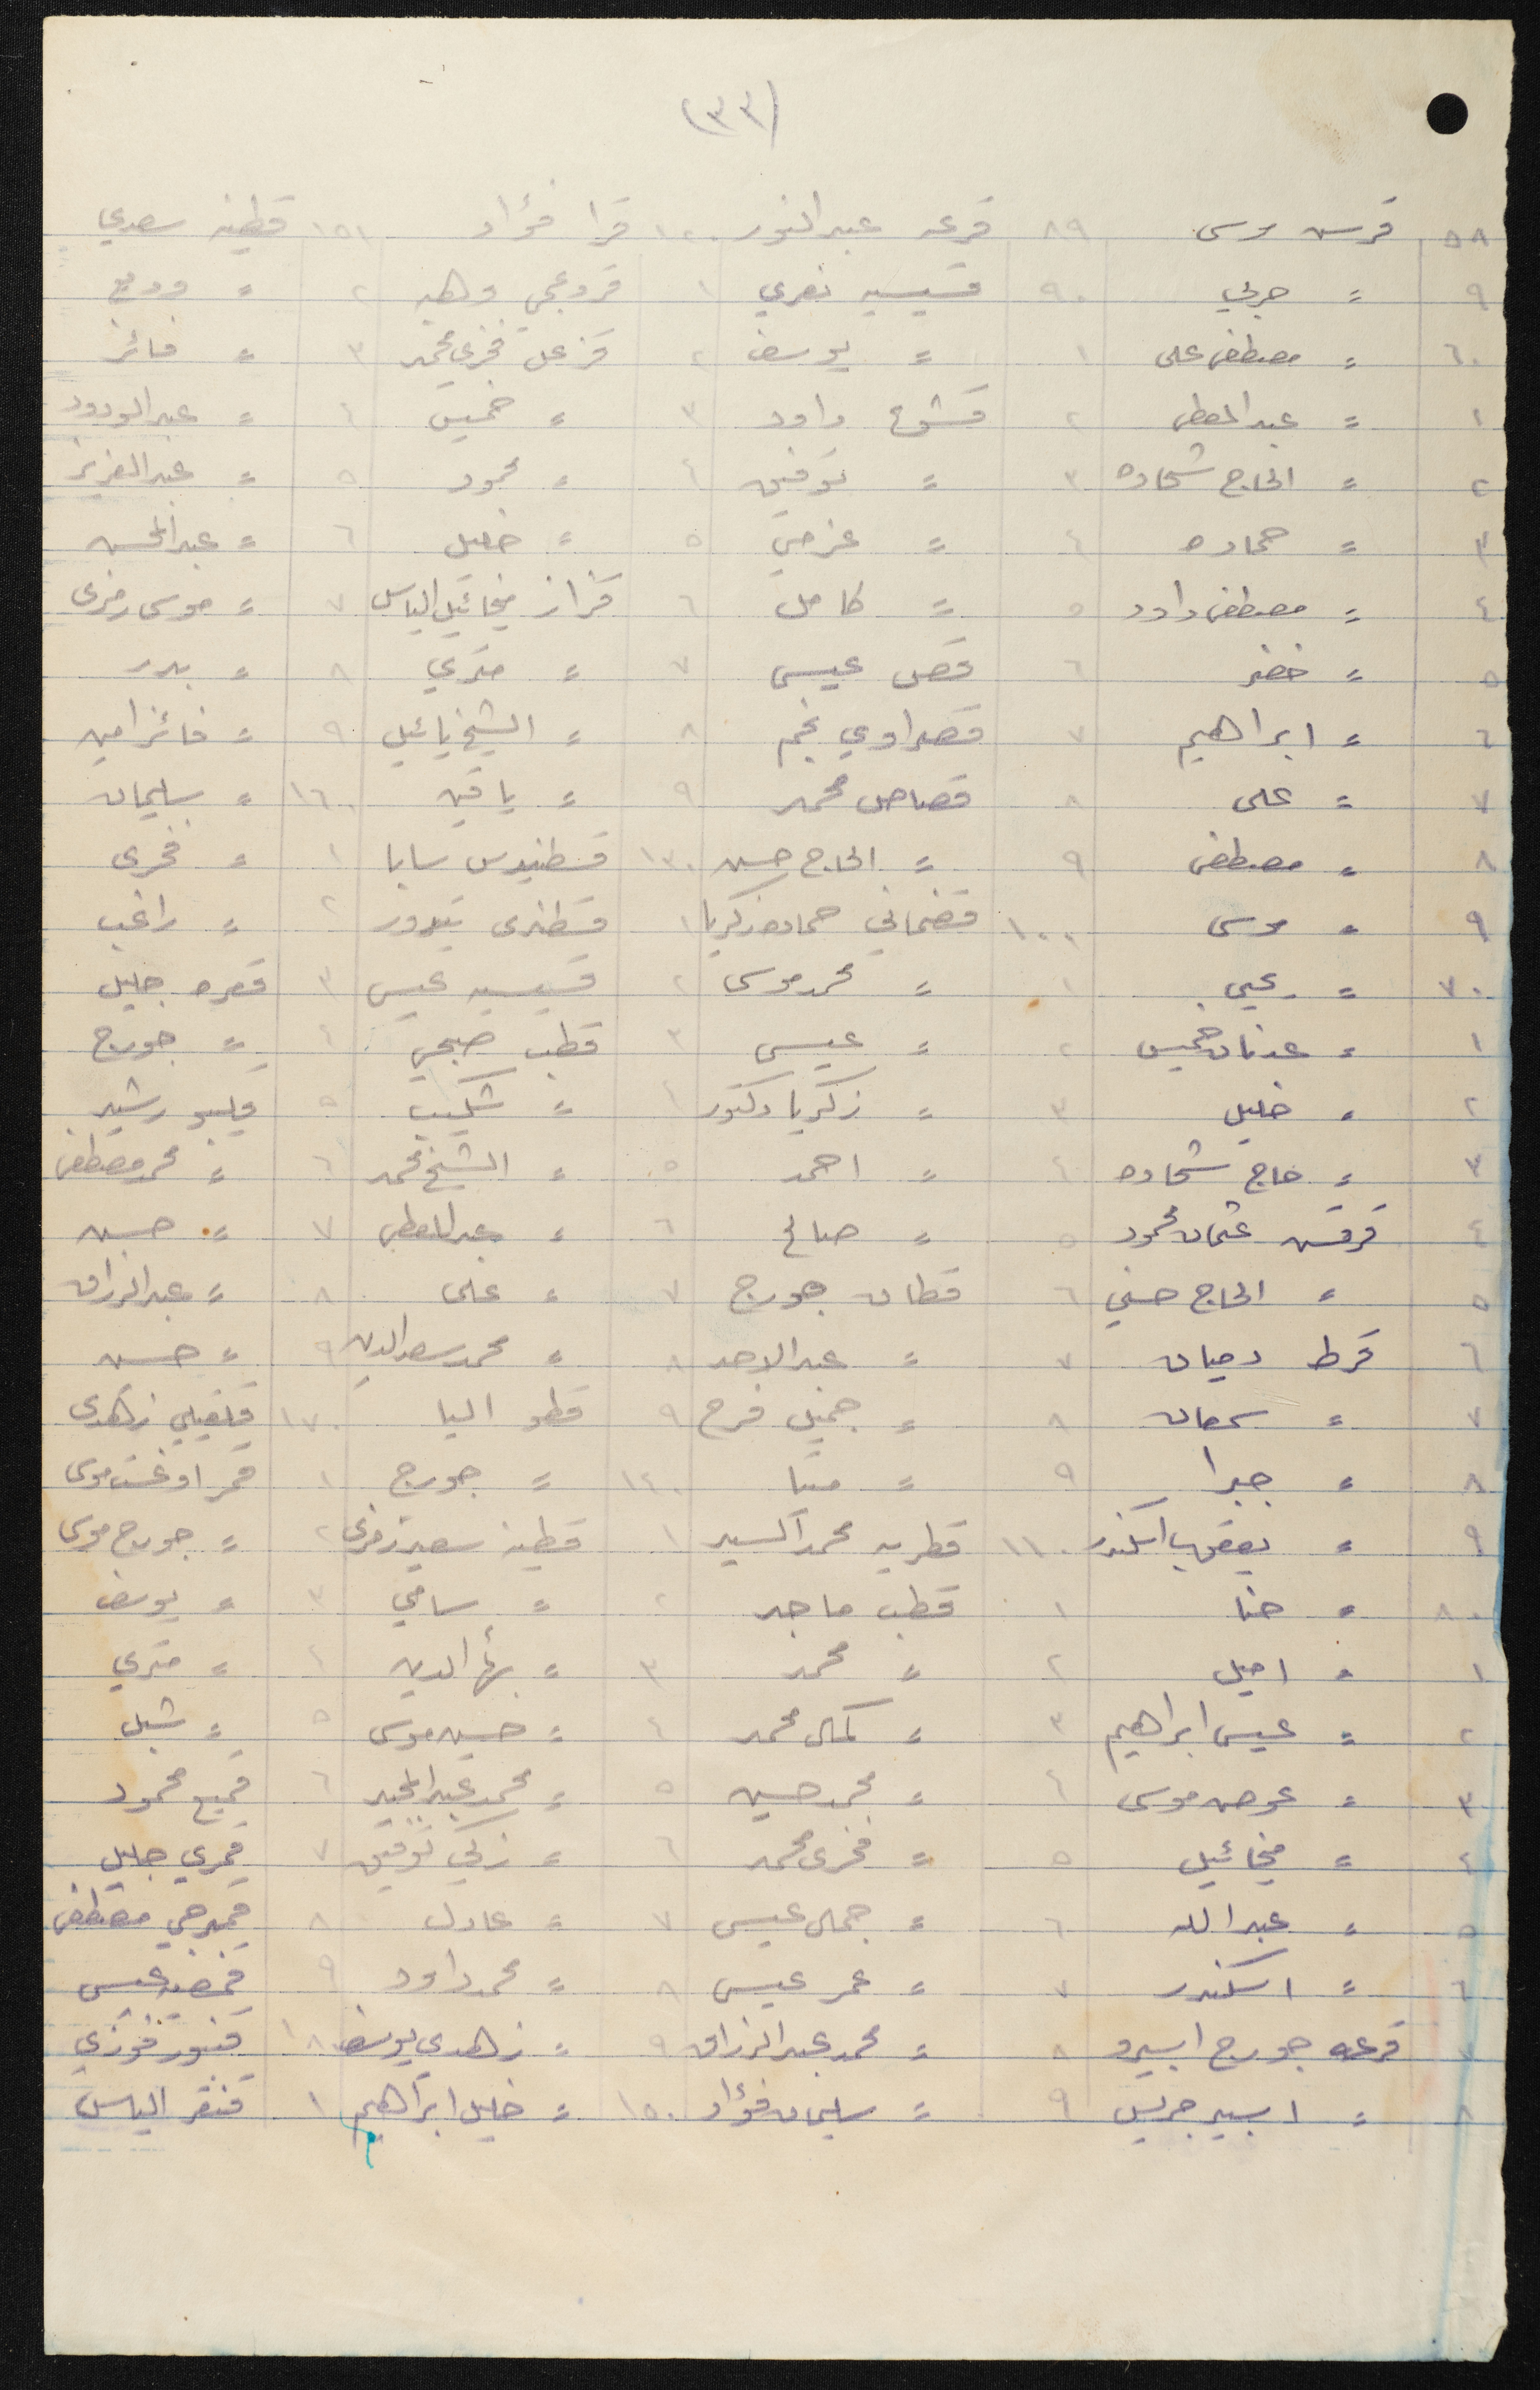 (٣٣)
٥٨ قرس موسى ٨٩ قرعه عبد النور ١٢٠ قرا فؤاد ١٥١ قطينه سعدي
٩ = حربي ٩٠ قسيسيه نصري ١ قردعجي وهبه ٢ = وديع
٦٠ = مصطفى على ١ = يوسف ٢ قزعل فخري محمد ٣ = فائز
١ = عبد المعطي ٢ قشوع داود ٣ = خميس ٤ = عبد الودود
٢ = الحاج شحاده ٣ = توفيق ٤ = محمود ٥ = عبد العزيز
٣ = حماده ٤ = عزمي ٥ = خليل ٦ = عبد المحسن
٤ = مصطفى داود ٥ = كامل ٦ قزاز ميخائيل الياس ٧ = موسى رمزى
٥ = خضر ٦ قصص عيسى ٧ = متري ٨ = بدر
٦ = ابراهيم ٧ قصراوي نجم ٨ = الشيخ يائيل ٩ = فائز امين
٧ = على ٨ قصاص محمد ٩ = يا قين ١٦٠ = سليمان
٨ = مصطفى ٩ = الحاج حسن ١٣٠ قسطنيدس سابا ١ = فخرى
٩ = موسى ١٠٠ قضماني حماده زكريا ١ قسطندى تيودور ٢ = راغب
٧٠ = يحيى ١ = محمد موسى ٢ قسيسيه عيسى ٣ قعره جليل
١ = عدنان خميس ٢ = عيسى ٣ قطب صبحي ٤ = جورج
٢ = خليل ٣ = زكريا دكتور ٤ = شكيب ٥ قليبو رشيد
٣ = حاج شحاده ٤ = احمد ٥ = الشيخ محمد ٦ = محمد مصطفى
٤ قرقش عثمان محمود ٥ = صالح ٦ = عبد المعطي ٧ = حسن
٥ = الحاج حسني ٦ قطان جورج ٧ = على ٨ = عبد الرزاق
٦ قرط دميان ٧ = عبد الاحد ٨ = محمد سعد الدين ٩ = حسن
٧ = سمعان ٨ = جميل فرح ٩ قطو اليا ١٧٠ قلقيلي زهدى
٨ = جبرا ٩ = متيا ١٤٠ = جورج ١ قمر اوغست موسى
٩ = يعقوب اسكندر ١١٠ قطريه محمد السيد ١ قطينه سعيد رمزى ٢ = جورج موسى
٨٠ = حنا ١ قطب ماجد ٢ = سامي ٣ = يوسف
١ = اميل ٢ = محمد ٣ = بهاء الدين ٤ = متري
٢ = عيسى ابراهيم ٣ = كمال محمد ٤ = حسين موسى ٥ = شبل
٣ = عوض موسى ٤ = محمد حسين ٥ = محمد عبد المجيد ٦ قميع محمود
٤ = ميخائيل ٥ = فخرى محمد ٦ = زكي توفيق ٧ قمري جليل
٥ = عبد الله ٦ = جمال عيسى ٧ = عادل ٨ قمبرجي مصطفى
٦ = اسكندر ٧ = عمر عيسى ٨ = محمد داود ٩ قمصيه عيسى
٧ قرعه جورج ابيرو ٨ = محمد عبد الرزاق ٩ = زهدي يوسف ١٨٠ قنور فوزي
٨ = اسبير جريس ٩ = سليمان فؤاد ١٥٠ = خليل ابراهيم ١ قنقر الياس